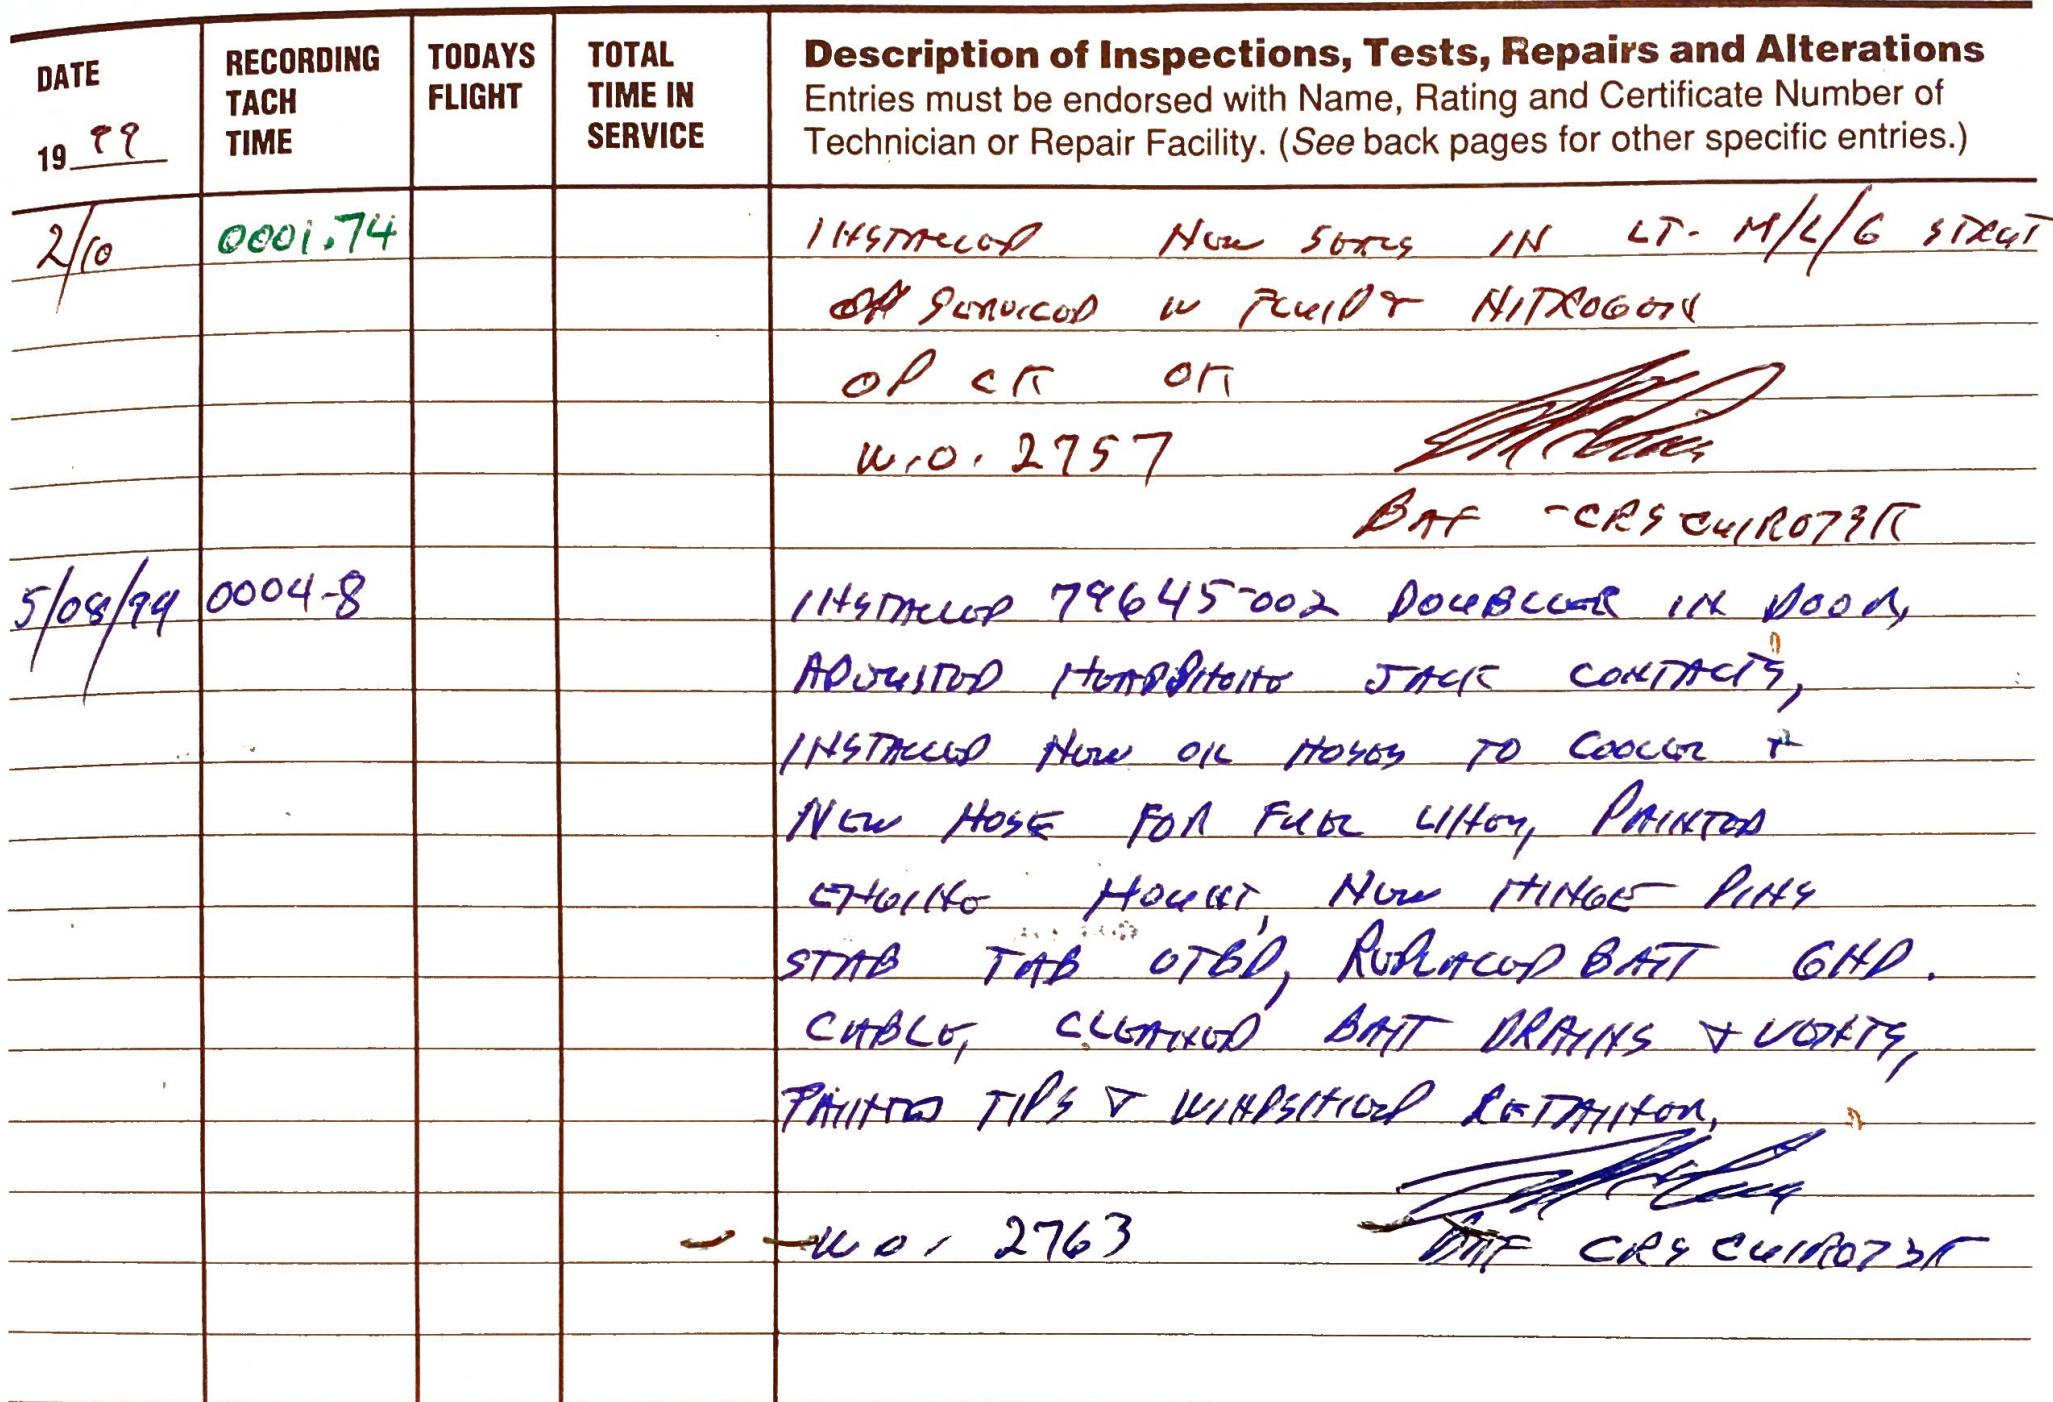 DATE
19 99
RECORDING
TACH
TIME
TODAYS
FLIGHT
TOTAL
TIME IN
SERVICE
Description of Inspections, Tests, Repairs and Alterations
Entries must be endorsed with Name, Rating and Certificate Number of
Technician or Repair Facility. (See back pages for other specific entries.)
2/10 0001.74 INSTALLED NEW SEALS IN LT- M/L/G STRUT
SERVICED W FLUID & NITROGEN
OP CK OK
W.O. 2757
BAF -CRS CU1R073K
5/08/99 0004-8 INSTALLED 79645-002 DOUBLER IN DOOR,
ADJUSTED HEADPHONE JACK CONTACTS,
INSTALLED NEW OIL HOSES TO COOLER &
NEW HOSE FOR FUEL LINE, PAINTED
ENGINE MOUNT, NEW HINGE PINS
STAB TAB OTBD, REPLACED BATT GND.
CABLE, CLEANED BATT DRAINS & VENTS,
PAINTED TIPS & WINDSHIELD RETAINER.
W.O. 2763
BAF CRS CU1R073K